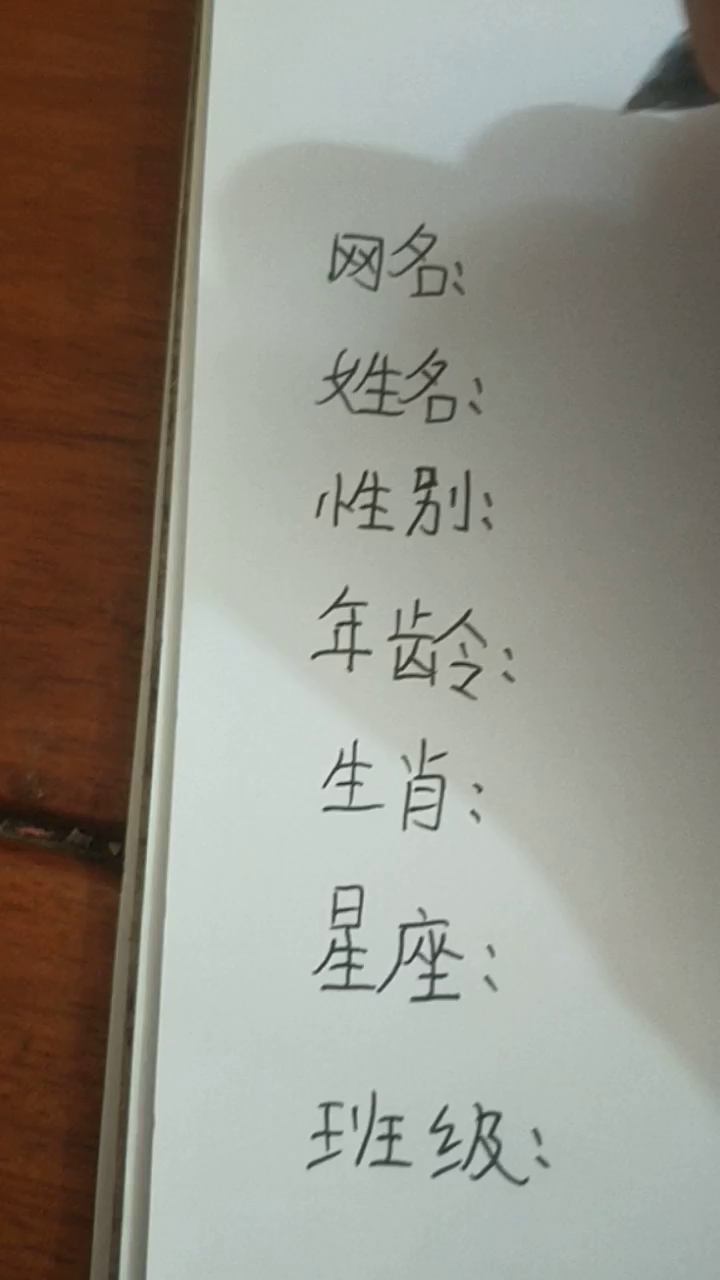 网名:
姓名:
性别:
年龄:
生肖:
星座:
班级: